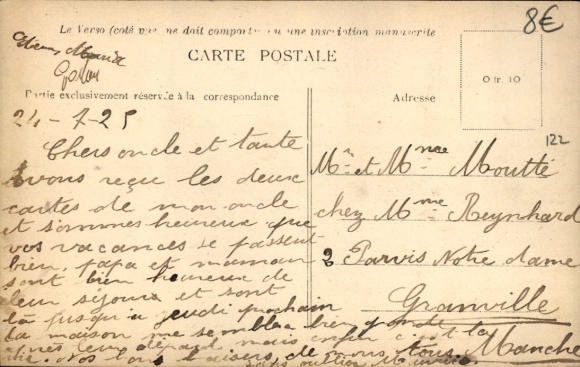 8€
Le Verso (coté vue ne doit comporter aucune inscription manuscrite
CARTE POSTALE
0 fr. 10
Partie exclusivement réservée à la correspondance
Adresse
24-7-25
122
Chers oncle et tante
Avons reçu les deux
cartes de mon oncle
et sommes heureux que
vos vacances se passent
bien, papa et maman
sont bien heureux de
leur séjour et sont
là jusqu'à jeudi prochain
la maison me semblera bien
après leur départ, mais enfin c'est la
vie. Nos bons baisers de nous tous.
sans oublier
Mr et Mme Moutte
chez Mme Reynhard
2 Parvis Notre dame
Granville
Manche